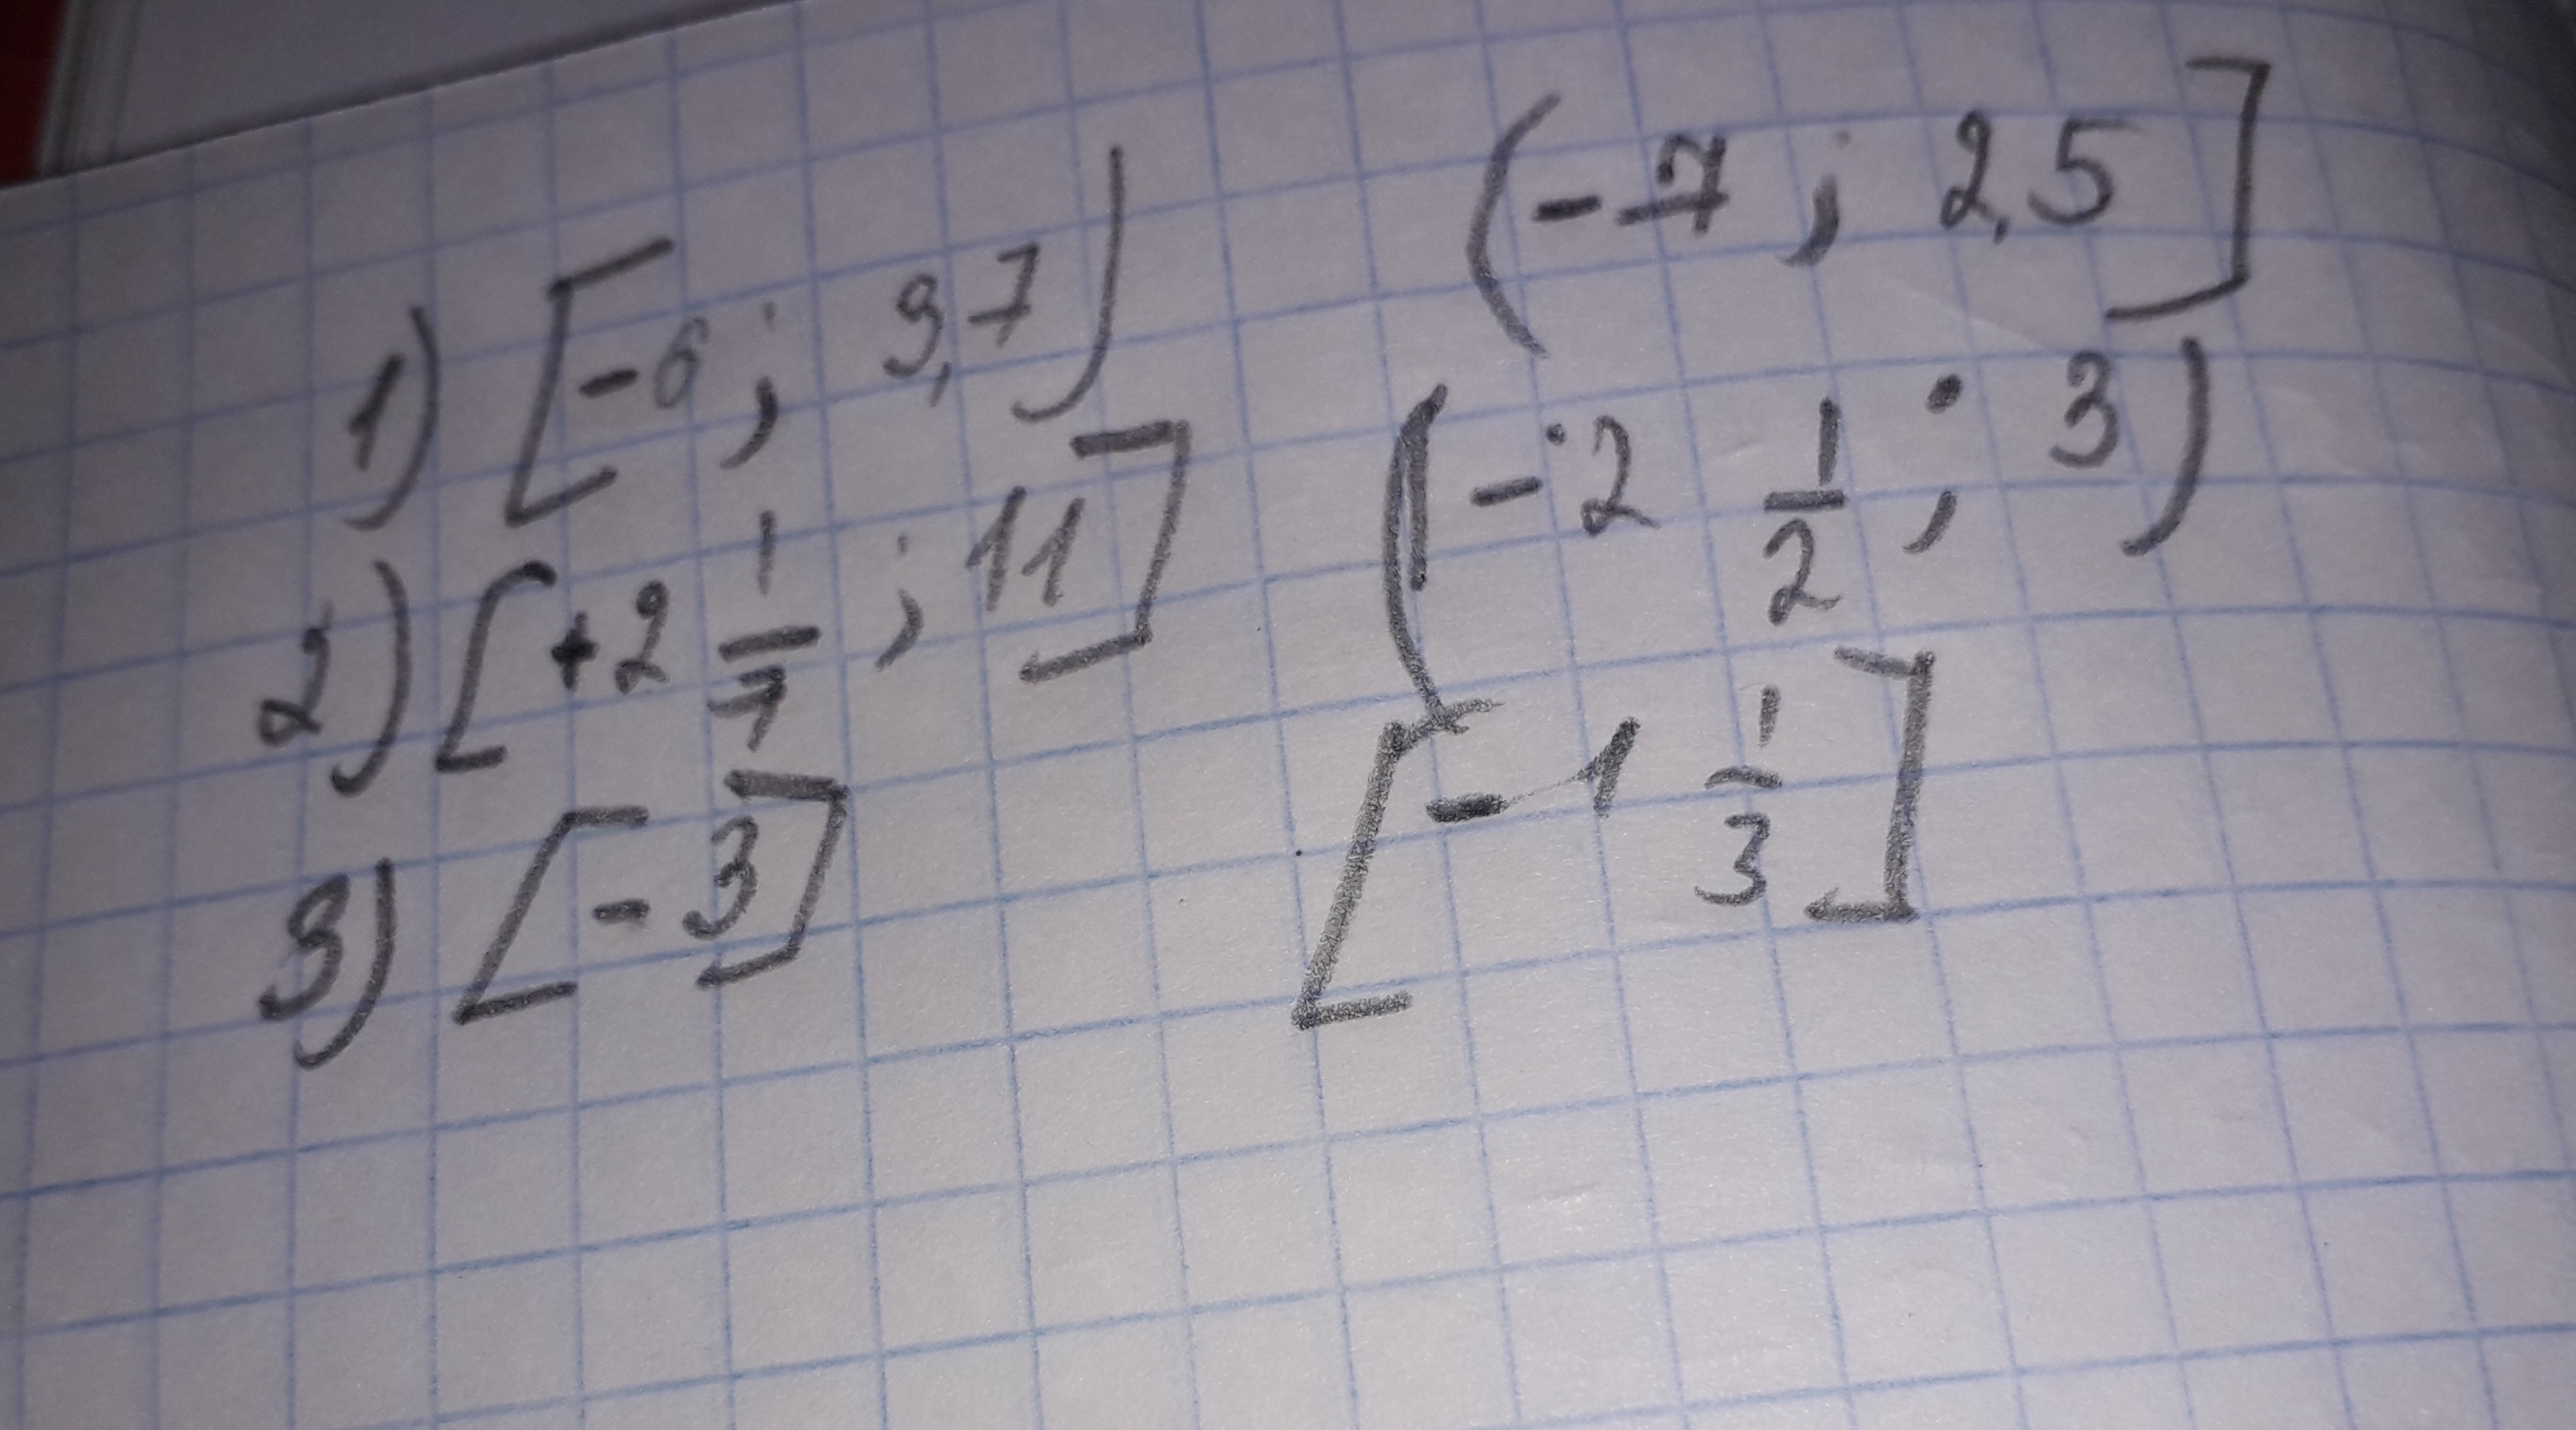 1) [-6; 3,7) (-7; 2,5]
2) [+2 1/7; 11] (-2 1/2; 3)
3) [-3] [-1 1/3]